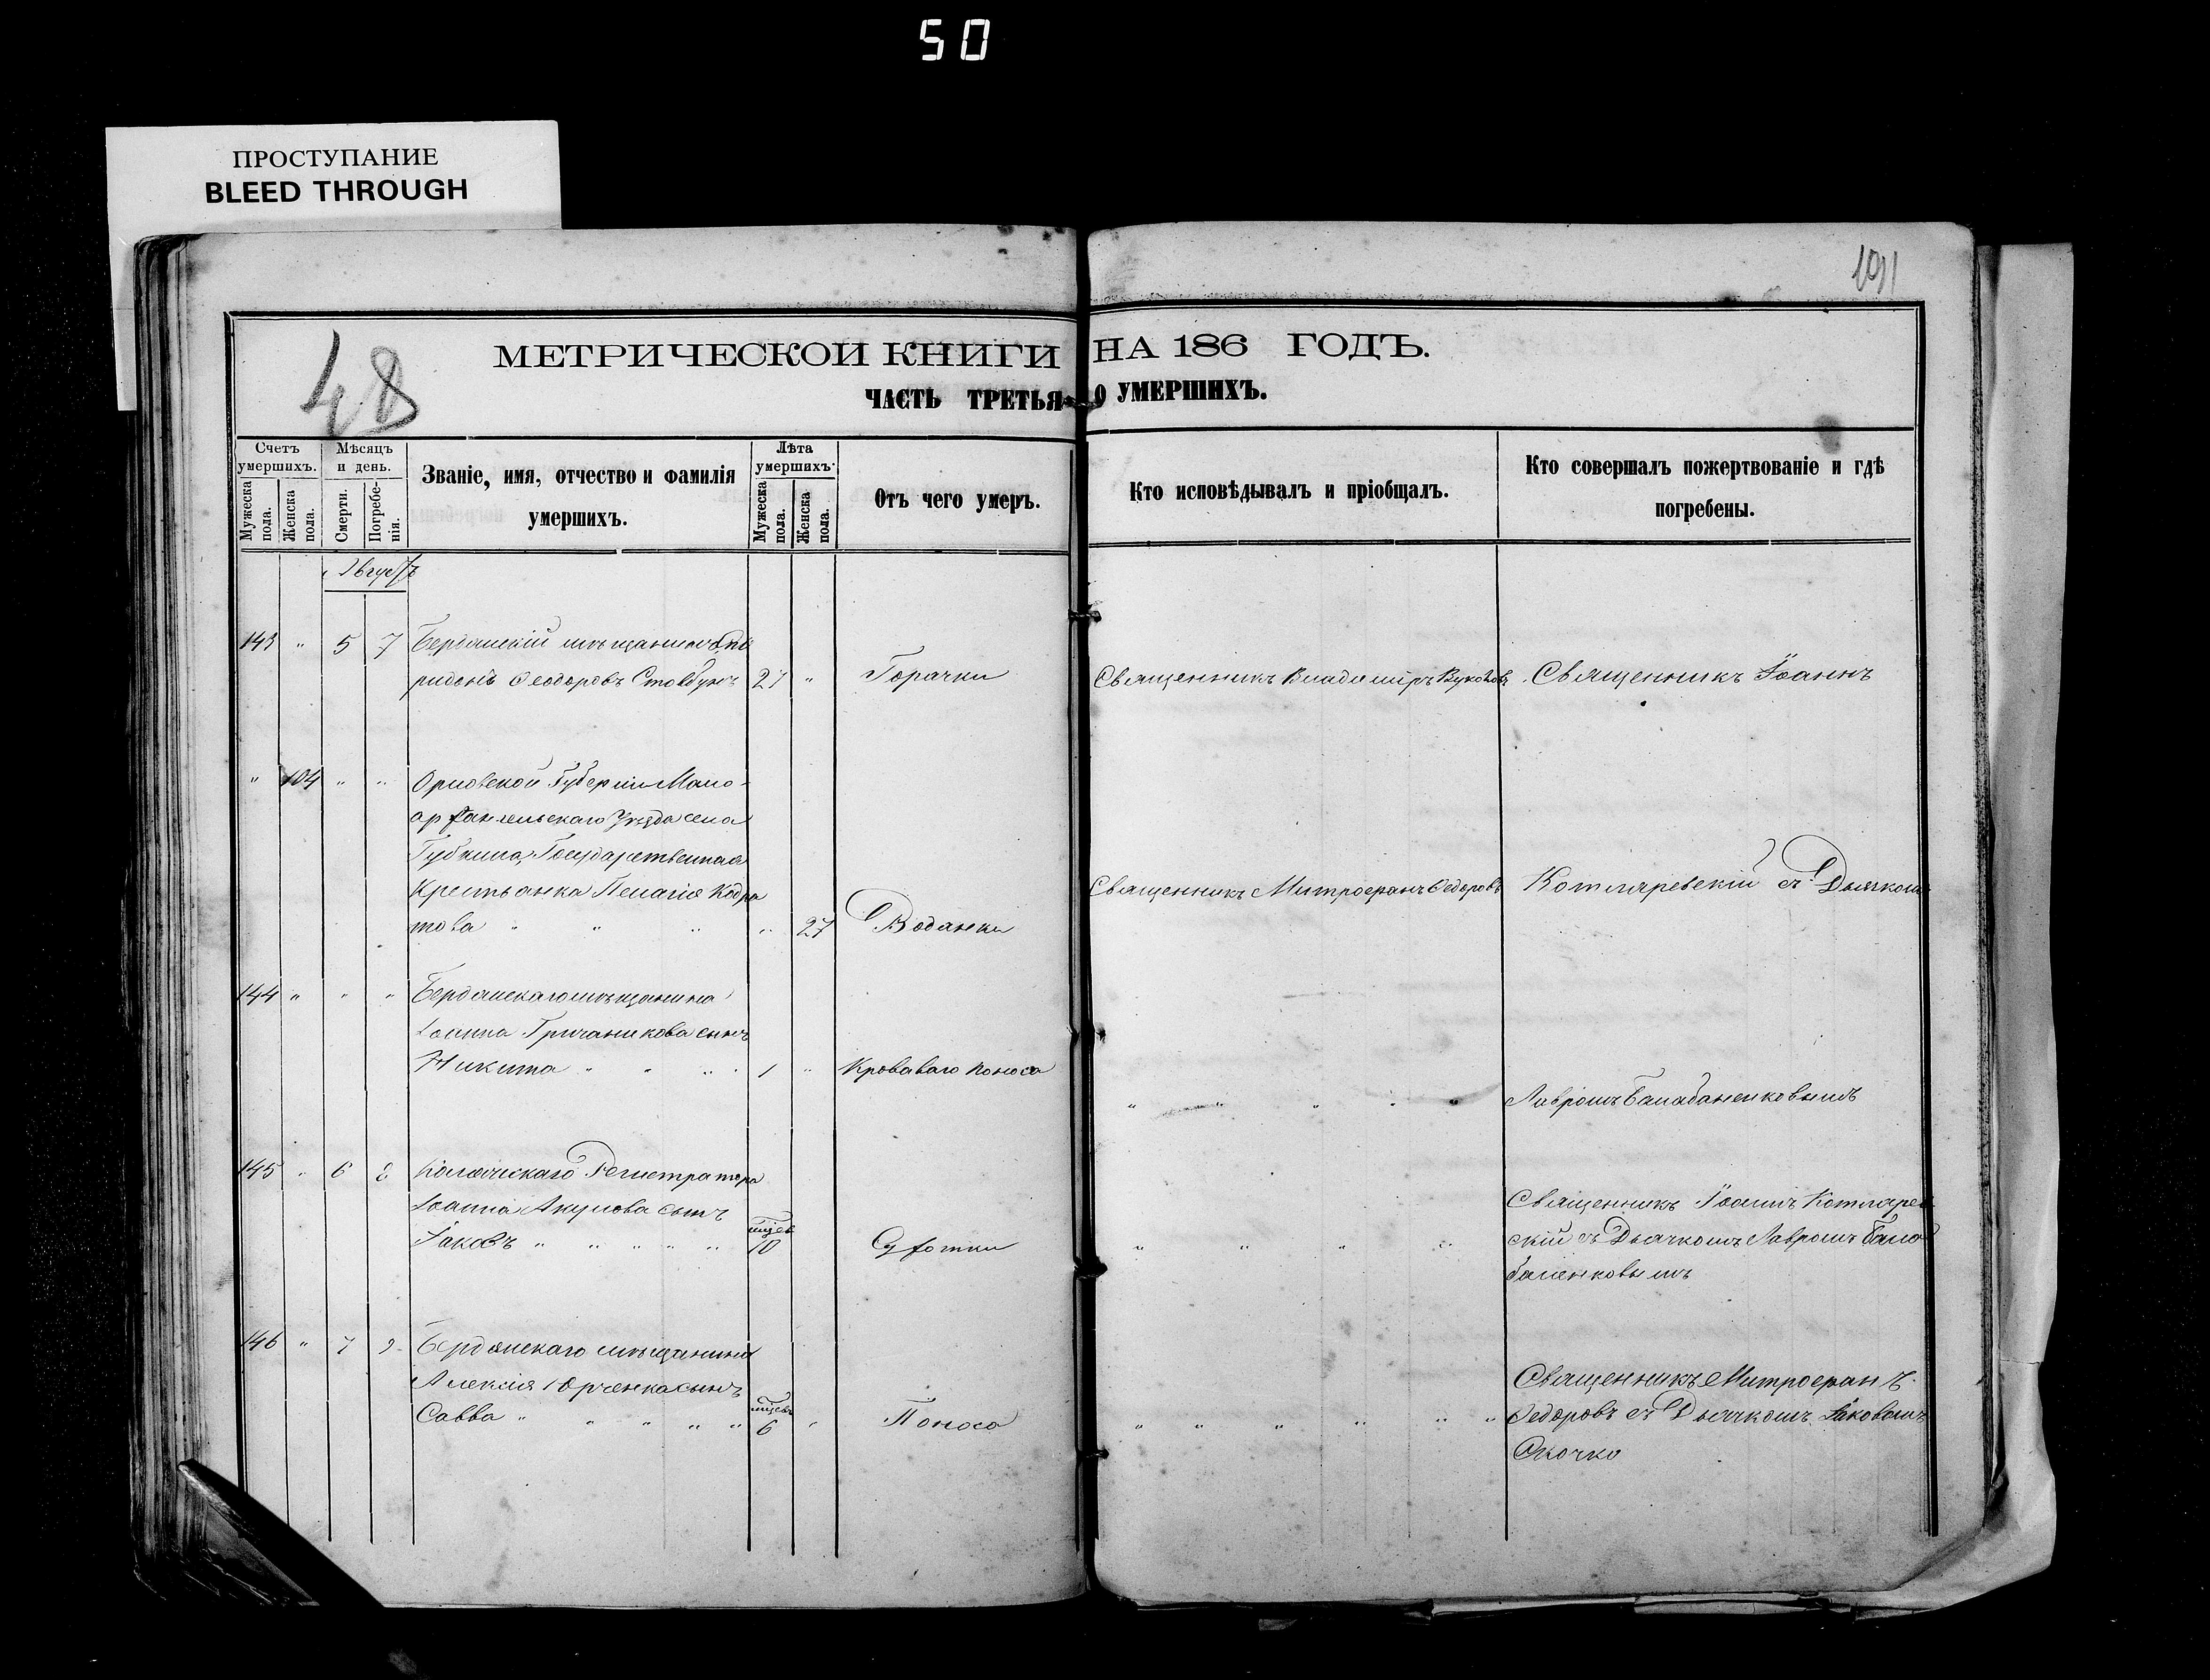 50
ПРОСТУПАНИЕ
BLEED THROUGH
48
МЕТРИЧЕСКОЙ КНИГИ НА 186 ГОДЪ.
ЧАСТЬ ТРЕТЬЯ О УМЕРШИХЪ.
Счетъ умершихъ.
Мужеска пола.
Женска пола.
Мѣсяцъ и день.
Смерти.
Погребенія.
Званіе, имя, отчество и фамилія
умершихъ.
Лѣта умершихъ.
Мужеска пола.
Женска пола.
Отъ чего умеръ.
Кто исповѣдывалъ и пріобщалъ.
Кто совершалъ пожертвованіе и гдѣ
погребены.
Августъ
143 " 5 7 Бердянскій мѣщанинъ Спи
ридонъ Ѳеодоровъ Столбунъ 27 " Горячки Священникъ Владиміръ Священникъ Іоаннъ
" 104 " " Орловской Губерніи Мало-
архангельскаго Уѣзда села
Губкина, Государственная
Крестьянка Пелагія Кодра Священникъ Митрофанъ Ѳедоровъ Котляревскій съ Дьячкомъ
това " " " " 27 Водянки
144 " " " Бердянскаго мѣщанина
Іоанна Гричаникова сынъ
Никита " " " 1 " Кроваваго поноса
" " " " " Лавромъ Балабаненковымъ
145 " 6 8 Коллежскаго Регистратора
Іоанна Акулова сынъ Священникъ Іоаннъ Котлярев
Іаковъ " " " " " мѣсяц 10 Сухотки " " " " скій съ Дьячкомъ Лавромъ Бала
баненковымъ
146 " 7 9 Бердянскаго мѣщанина
Алексія Юрченка сынъ Священникъ Митрофанъ
Савва " " " " " мѣсяц 6 " Поноса " " " " " " Ѳедоровъ съ Дьячкомъ Іаковомъ
Скочко